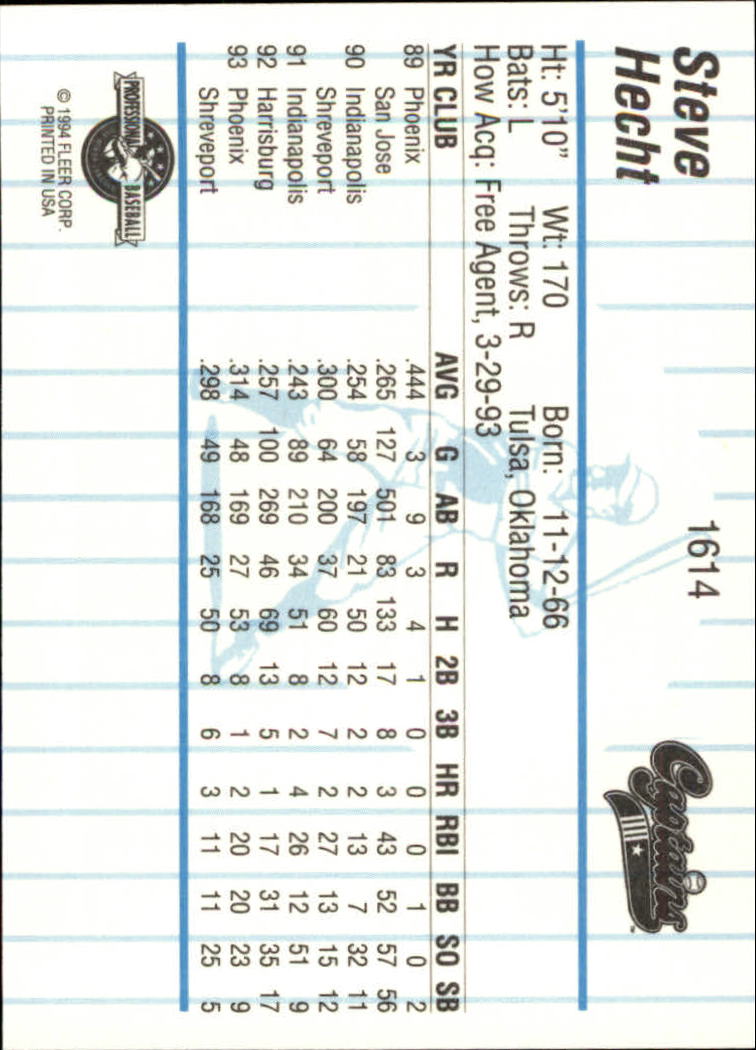 Steve 1614
Hecht Captains
Ht: 5'10" Wt: 170 Born: 11-12-66
Bats: L Throws: R Tulsa, Oklahoma
How Acq: Free Agent, 3-29-93
YR CLUB AVG G AB R H 2B 3B HR RBI BB SO SB
89 Phoenix .444 3 9 3 4 1 0 0 0 1 0 2
San Jose .265 127 501 83 133 17 8 3 43 52 57 56
90 Indianapolis .254 58 197 21 50 12 2 2 13 7 32 11
Shreveport .300 64 200 37 60 12 7 2 27 13 15 12
91 Indianapolis .243 89 210 34 51 8 2 4 26 12 51 9
92 Harrisburg .257 100 269 46 69 13 5 1 17 31 35 17
93 Phoenix .314 48 169 27 53 8 1 2 20 20 23 9
Shreveport .298 49 168 25 50 8 6 3 11 11 25 5
PROFESSIONAL BASEBALL
© 1994 FLEER CORP.
PRINTED IN USA